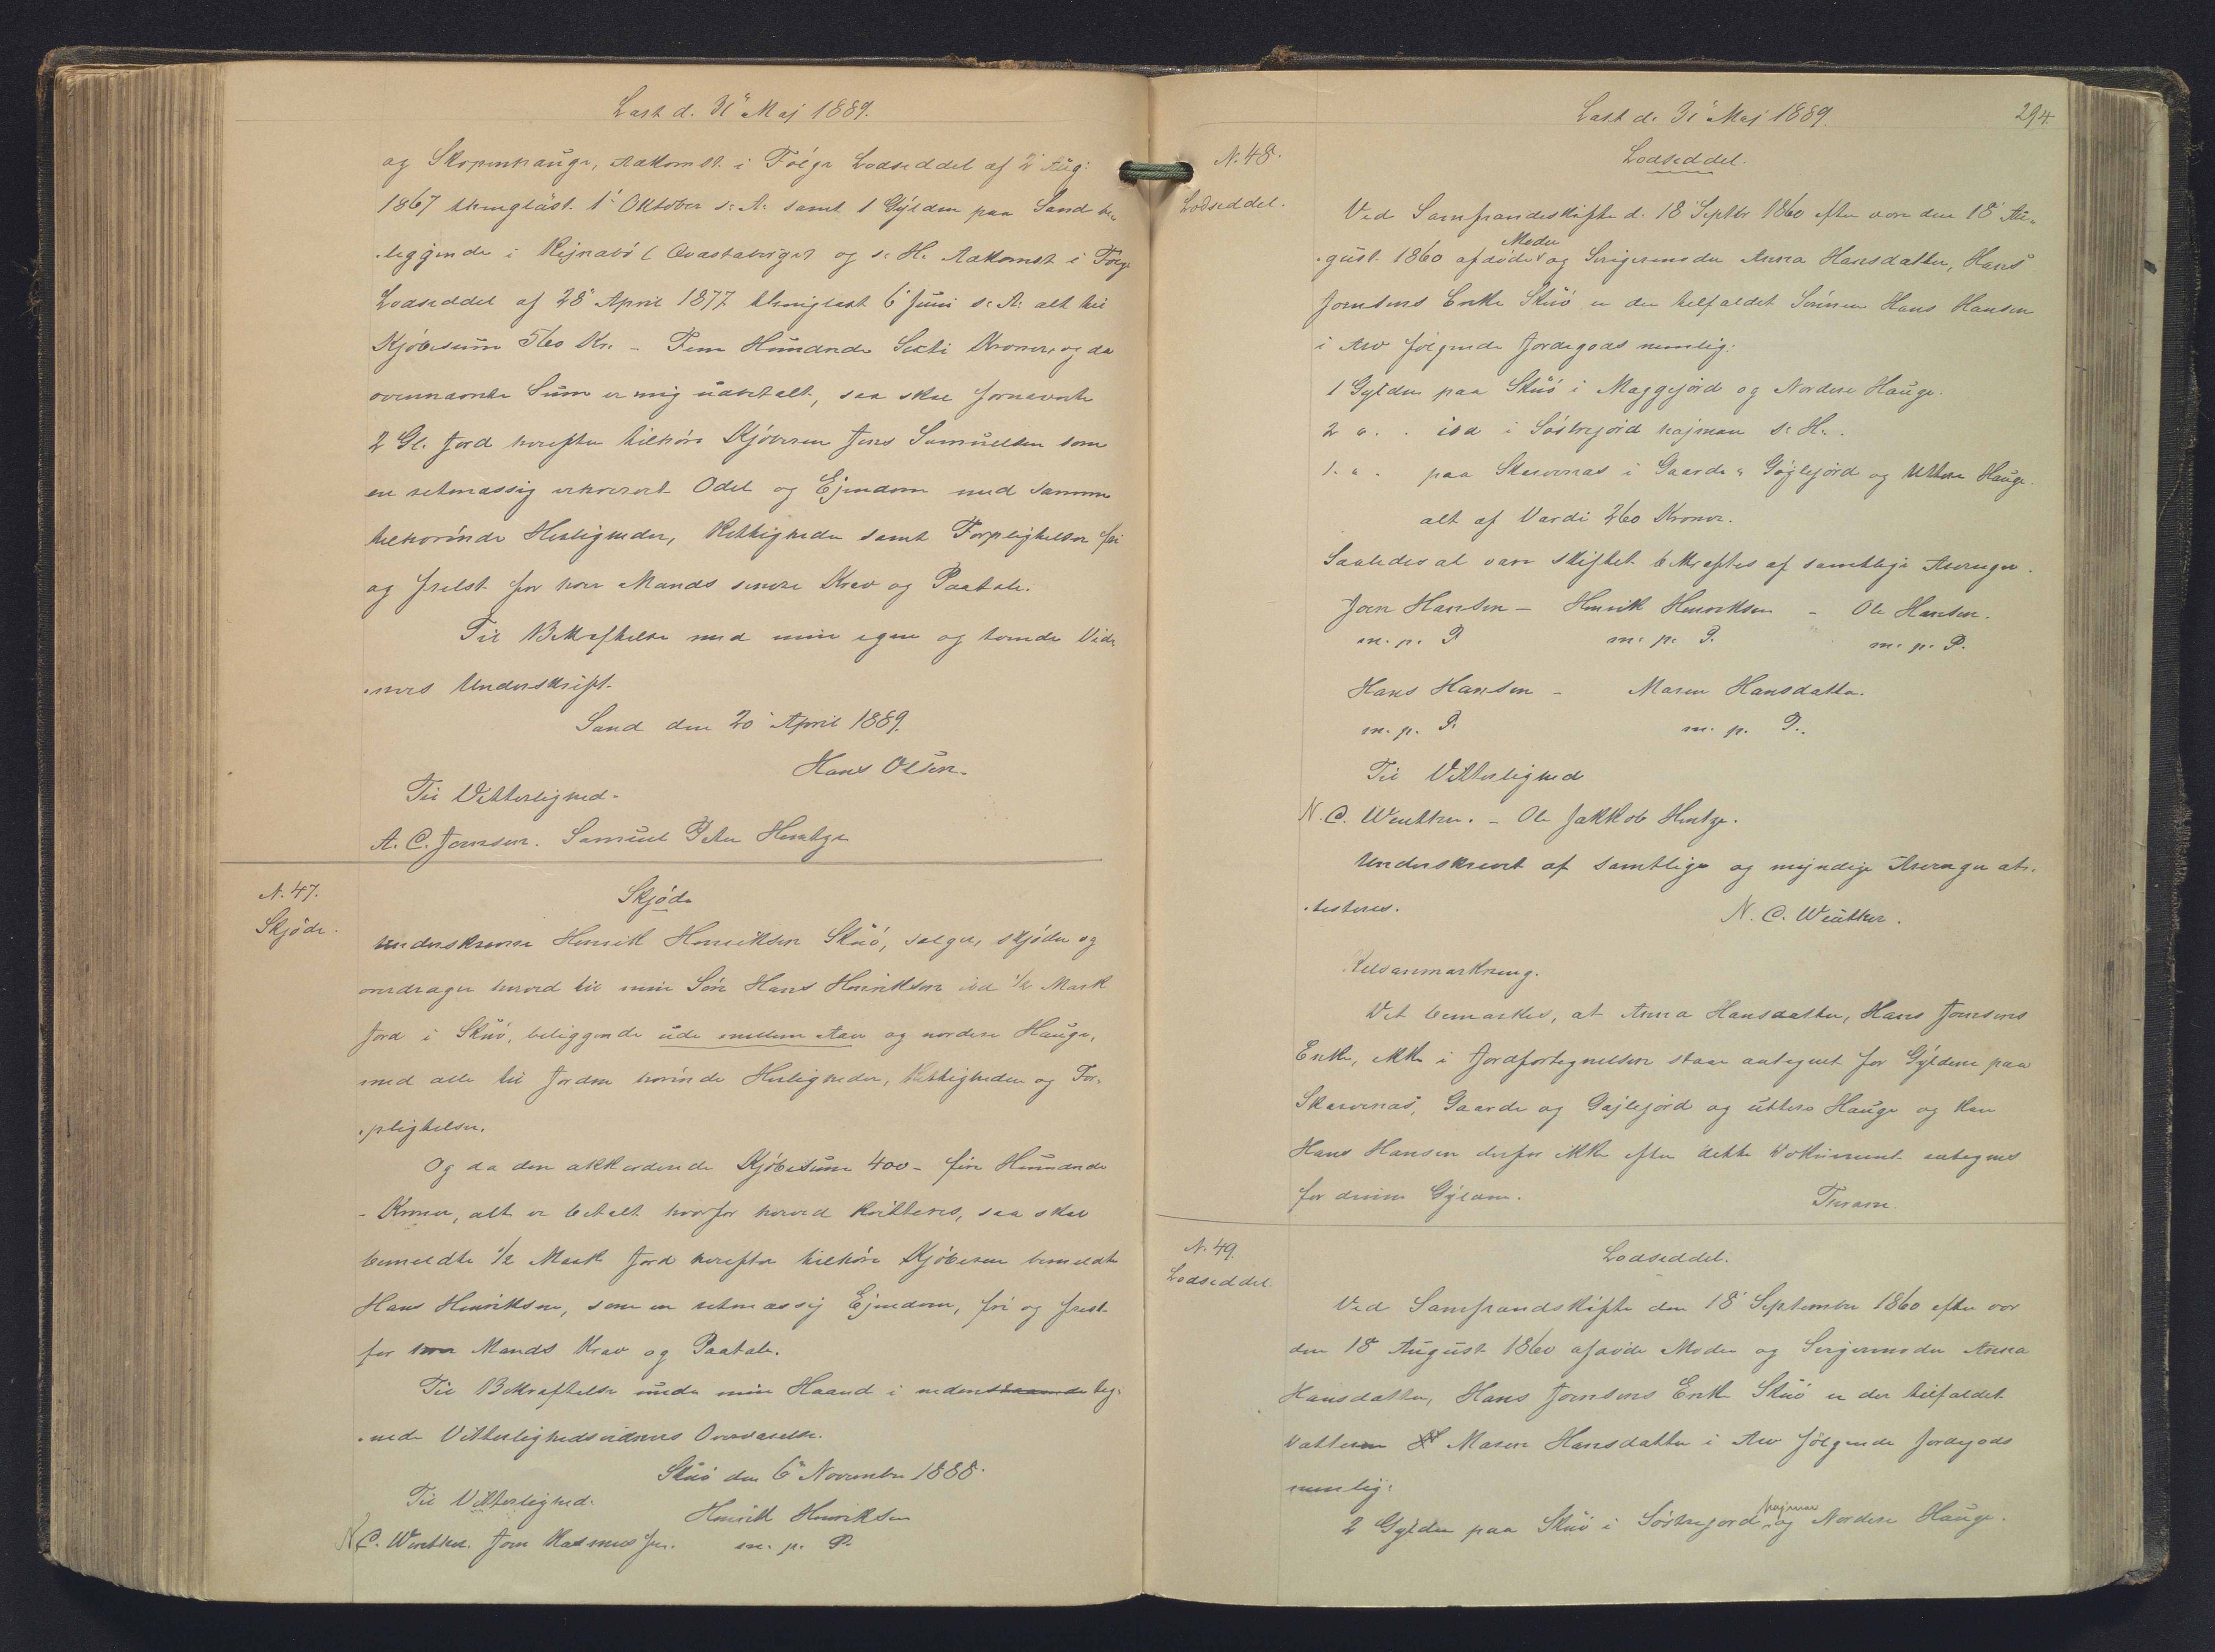 Læst d. 31' Maj 1889.
og Skopenhauge, Adkomst i Følge Lodseddel af 2' Aug:
1867 thinglæst 1' Oktober s: A: samt 1 Gylden paa Sand be„
„liggende i Rejnabø (Qvastaberget og s: H. Adkomst i Følge
Lodseddel af 28' April 1877 thinglæst 6' Juni s: A: alt til
Kjøbesum 560 Kr. – Fem Hundrede Sexti Kroner, og da
ovennævnte Sum er mig udbetalt, saa skal fornævnte
2 Gl. Jord herefter tilhøre Kjøberen Jens Samuelsen som
en retmæssig erhvervet Odel og Ejendom med samme
tilhørende Herligheder, Rettigheder samt Forpligtelser fri
og frelst for hver Mands senere Krav og Paatale.
Til Bekræftelse med min egen og tvende Vid„
„ners Underskrift.
Sand den 20' April 1889.
Hans Olsen.
Til Vitterlighed.
A. C. Joensen. Samuel Peter Hentze
N. 47.
Skjøde.
Skjøde
Underskrevne Henrik Henriksen Skuö, sælger, skjøder og
overdrager herved til min Søn Hans Henriksen ibd ½ Mark
Jord i Skuö, beliggende ude mellem Aaer og nordere Hauge,
med alle til Jorden hørende Herligheder, Rettigheder og For„
„pligtelser.
Og da den akkorderede Kjøbesum 400 – fire Hundrede
– Kroner, alt er betalt hvorfor herved kvitteres, saa skal
bemeldte ½ Mark Jord herefter tilhøre Kjøberen bemeldte
Hans Henriksen, som en retmæssig Ejendom, fri og frelst
for hver Mands Krav og Paatale.
Til Bekræftelse under min Haand i nedenstaaende teg„
„nede Vitterlighedsvidners Overværelse.
Skuö den 6' November 1888.
Til Vitterlighed:
Henrik Henriksen
N. C. Winther. Joen Rasmussen. m. p. P.
Læst d. 31' Maj 1889.
294
N. 48.
Lodseddel.
Lodseddel.
Ved Samfrændeskifte d. 18' Septbr 1860 efter vor den 18' Au„
„gust 1860 afdøde Moder og Svigermoder Anna Hansdatter, Hans
Joensens Enke Skuö er der tilfaldet Sønnen Hans Hansen
i Arv følgende Jordegods nemlig:
1 Gylden paa Skuö i Maggejord og Nordere Hauge.
2 „ . ibd i Söstrejord hajman s: H.
1. „ . paa Skarvenæs i Gaarde „ Gøjlejord og Uttere Hauge.
alt af Værdi 260 Kroner.
Saaledes at være skiftet bekræftes af samtlige Arvinger.
Joen Hansen – Henrik Henriksen – Ole Hansen.
m. p. P. m. p. P. m. p. P.
Hans Hansen – Maren Hansdatter.
m. p. P. m. p. P.
Til Vitterlighed
N. C. Winther. – Ole Jakkob Hentze.
Underskrevet af samtlige og myndige Arvinger at„
„testeres.
N. C. Winther.
Retsanmærkning.
Det bemærkes, at Anna Hansdatter, Hans Joensens
Enke, ikke i Jordfortegnelsen staar antegnet for Gyldene paa
Skarvenæs, Gaarde og Gøjlejord og uttere Hauge og kan
Hans Hansen derfor ikke efter dette Dokument antegnes
for denne Gylden.
N. 49.
Lodseddel.
Lodseddel.
Ved Samfrændeskifte den 18' September 1860 efter vor
den 18' August 1860 afdøde Moder og Svigermoder Anna
Hansdatter, Hans Joensens Enke Skuö er der tilfaldet
Datteren Maren Hansdatter i Arv følgende Jordegods
nemlig:
2 Gylden paa Skuö i Söstrejord hajman og Nordere Hauge.